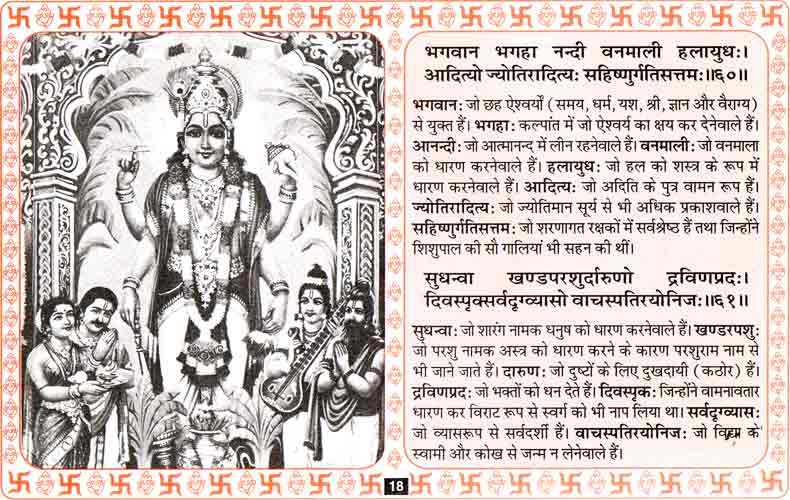 भगवान भगहा नन्दी वनमाली हलायुधः।
आदित्यो ज्योतिरादित्यः सहिष्णुर्गतिसत्तमः॥६०॥
भगवानः जो छह ऐश्वर्यों (समय, धर्म, यश, श्री, ज्ञान और वैराग्य)
से युक्त हैं। भगहाः कल्पांत में जो ऐश्वर्य का क्षय कर देनेवाले हैं।
आनन्दीः जो आत्मानन्द में लीन रहनेवाले हैं। वनमालीः जो वनमाला
को धारण करनेवाले हैं। हलायुधः जो हल को शस्त्र के रूप में
धारण करनेवाले हैं। आदित्यः जो अदिति के पुत्र वामन रूप हैं।
ज्योतिरादित्यः जो ज्योतिमान सूर्य से भी अधिक प्रकाशवाले हैं।
सहिष्णुर्गतिसत्तमः जो शरणागत रक्षकों में सर्वश्रेष्ठ हैं तथा जिन्होंने
शिशुपाल की सौ गालियां भी सहन की थीं।
सुधन्वा खण्डपरशुर्दारुणो द्रविणप्रदः।
दिवस्पृक्सर्वदृग्व्यासो वाचस्पतिरयोनिजः॥६१॥
सुधन्वाः जो शारंग नामक धनुष को धारण करनेवाले हैं। खण्डरपशुः
जो परशु नामक अस्त्र को धारण करने के कारण परशुराम नाम से
भी जाने जाते हैं। दारुणः जो दुष्टों के लिए दुखदायी (कठोर) हैं।
द्रविणप्रदः जो भक्तों को धन देते हैं। दिवस्पृकः जिन्होंने वामनावतार
धारण कर विराट रूप से स्वर्ग को भी नाप लिया था। सर्वदृग्व्यासः
जो व्यासरूप से सर्वदर्शी हैं। वाचस्पतिरयोनिजः जो के
स्वामी और कोख से जन्म न लेनेवाले हैं।
18